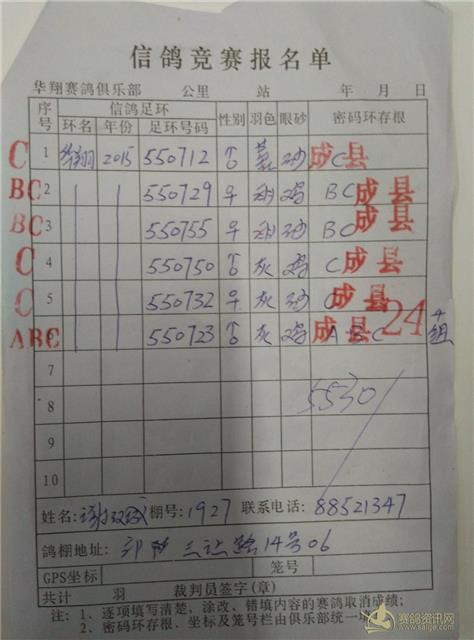 信鸽竞赛报名单
华翔赛鸽俱乐部 公里 站 年 月 日
序号 信鸽足环 性别 羽色 眼砂 密码环存根
环名 年份 足环号码
C 1 华翔 2015 550712 ♂ 砂 C 成县
BC 2 550729 ♀ 鸡 BC 成县
BC 3 550755 ♀ 砂 BC 成县
C 4 550750 ♂ 灰 鸡 C 成县
C 5 550732 ♀ 灰 砂 C 成县
ABC 6 550723 ♂ 灰 鸡 ABC 成县 24组
7
8 5530/
9
10
姓名: 棚号:1927 联系电话:88521347
鸽棚地址: 三让路14号06
GPS坐标 笼号
共计 羽 裁判员签字(章)
注:1、逐项填写清楚,涂改、错填内容的赛鸽取消成绩;
2、密码环存根、坐标及笼号栏由俱乐部统一
赛鸽资讯网
www.saige.com